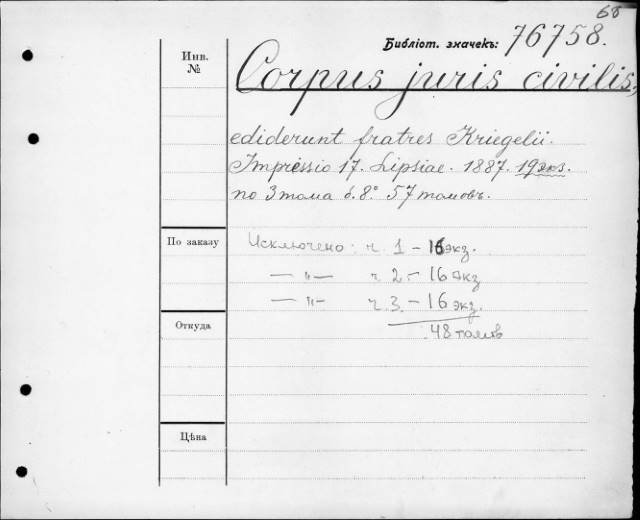 68
Библіот. значекъ: 76758.
Инв. №
Corpus juris civilis,
ediderunt fratres Kriegelii.
Impressio 17. Lipsiae. 1887. 19 экз.
по 3 тома б. 8° 57 томовъ.
По заказу
Исключено: ч. 1 – 16 экз.
— " — ч. 2 – 16 экз
— " — ч. 3. – 16 экз.
48 томов
Откуда
Цѣна